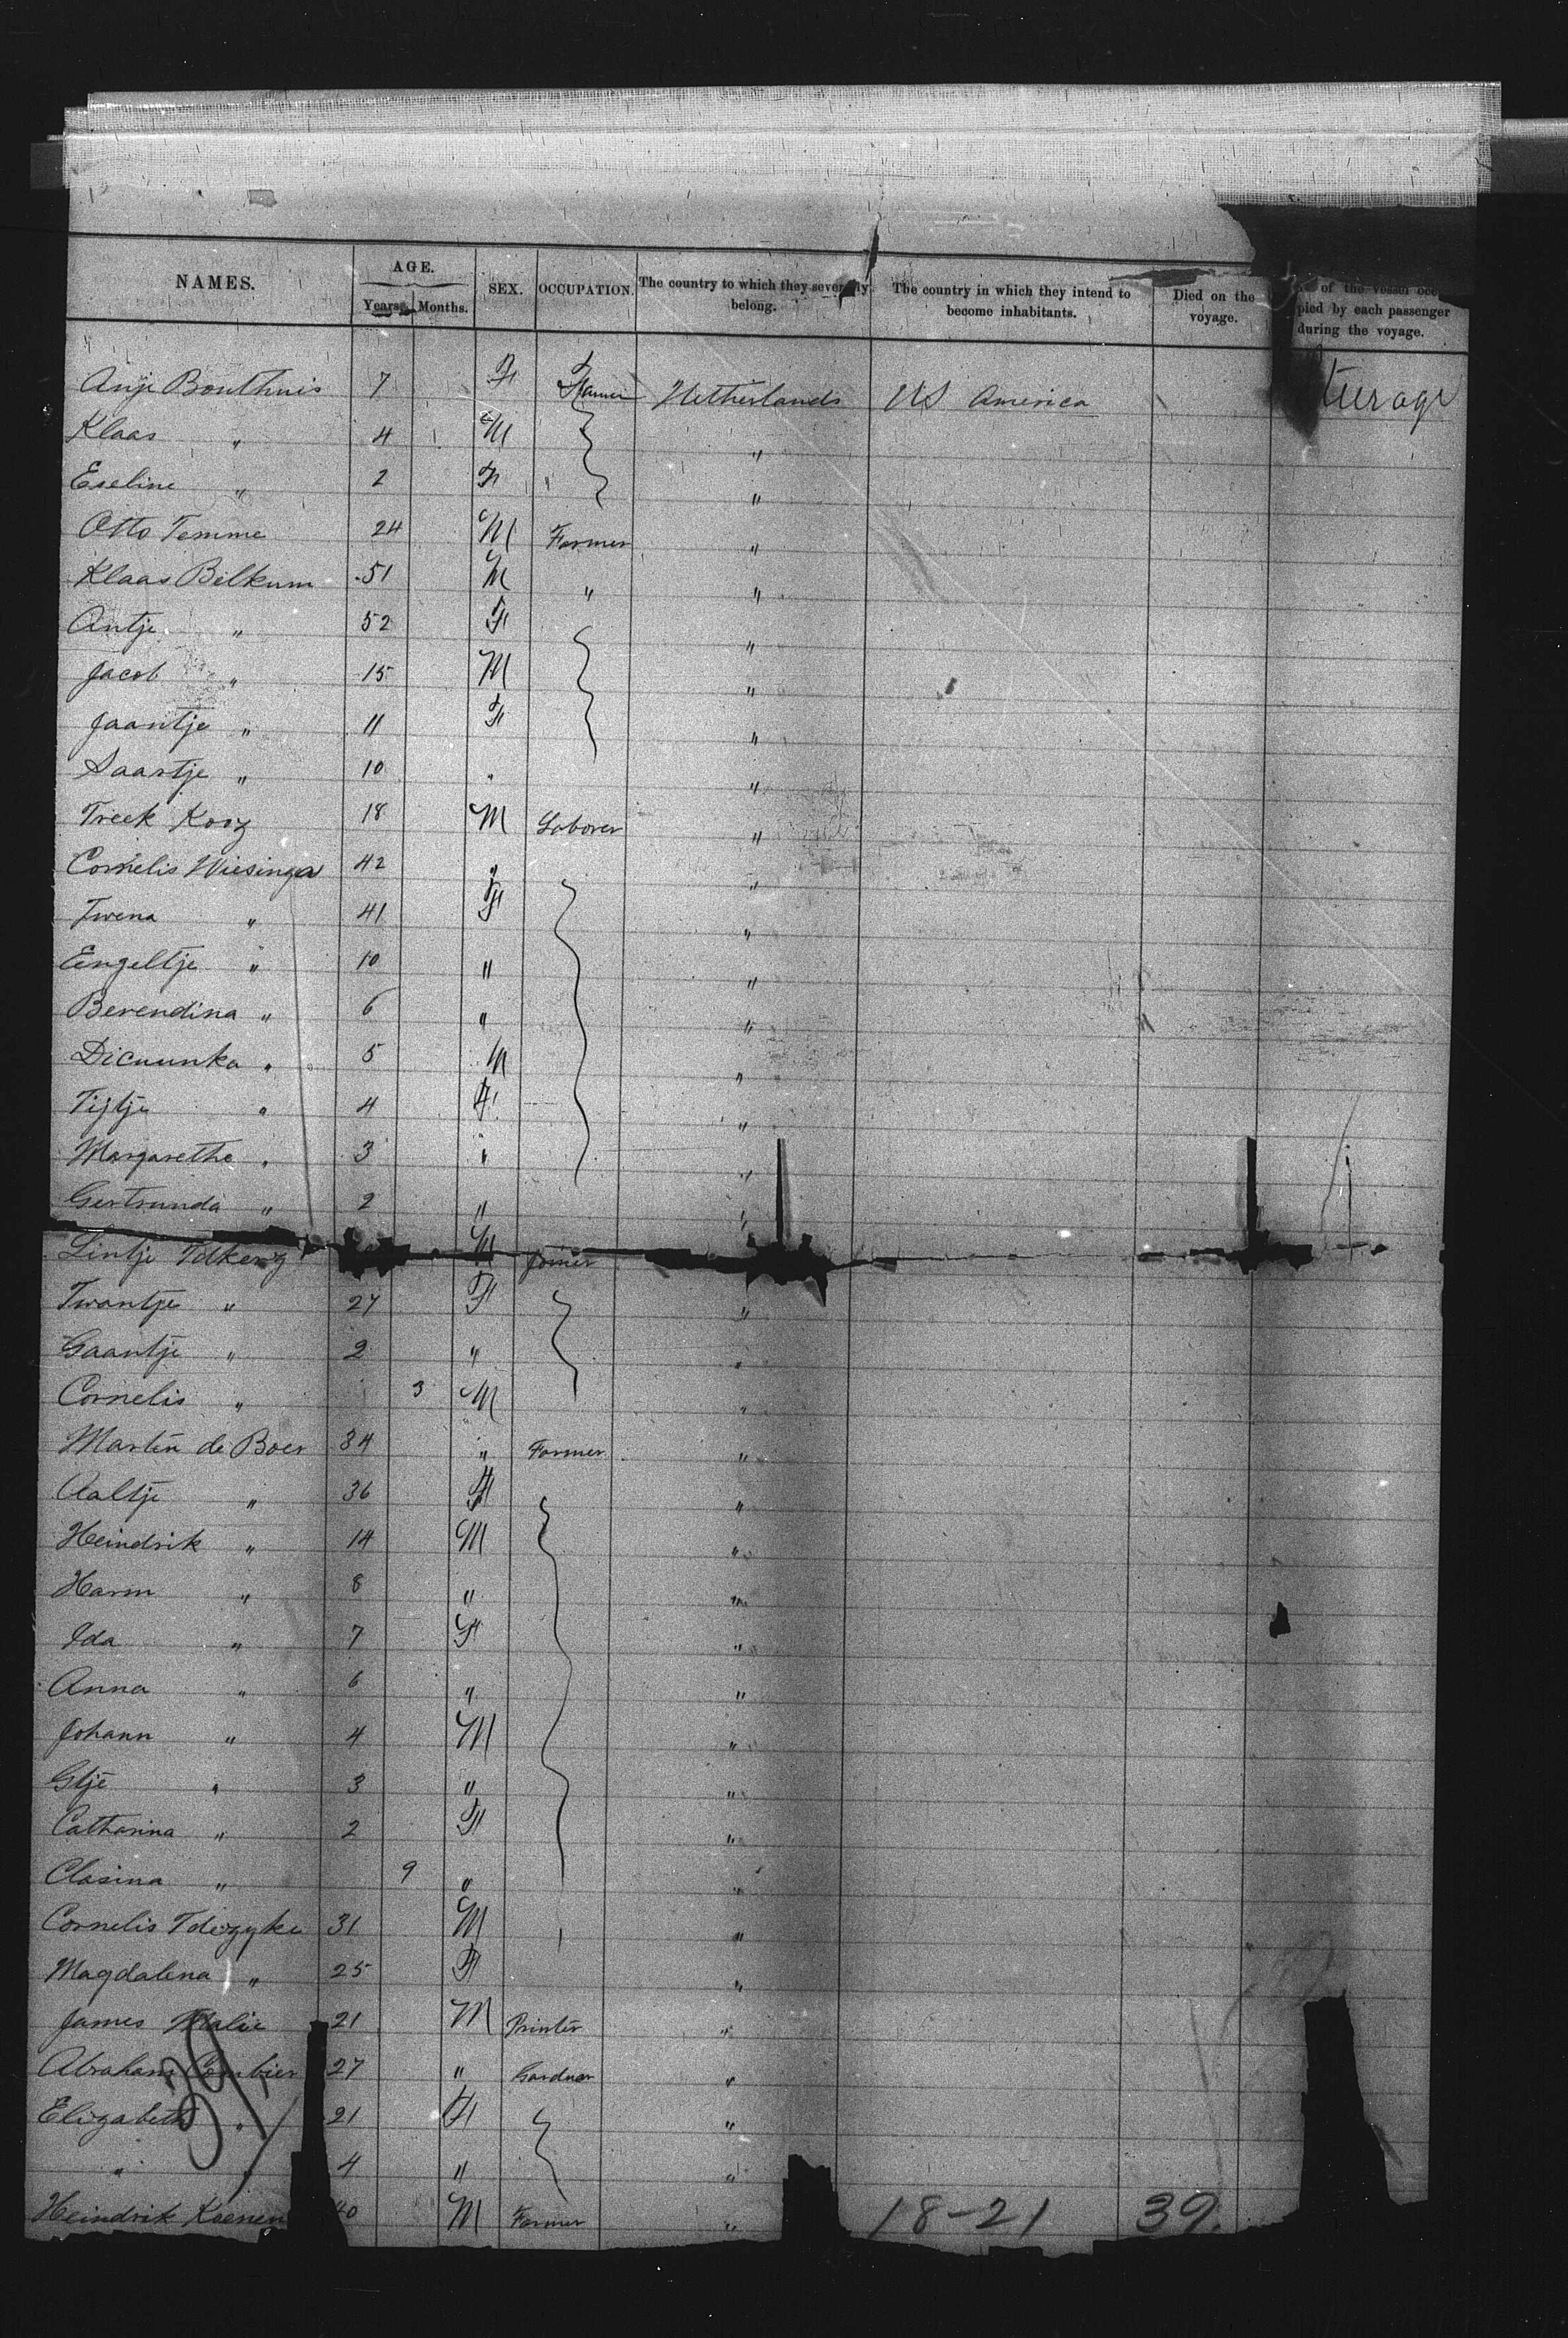 NAMES. AGE. Years. Months. SEX. OCCUPATION. The country to which they severally belong. The country in which they intend to become inhabitants. Died on the voyage. of the vessel occupied by each passenger during the voyage.
Anje Bouthuis 7 F Farmer Netherlands US America
Klaas " 4 M "
Eseline " 2 F "
Otto Temme 24 M Farmer "
Klaas Bilkum 51 M " "
Antje " 52 F "
Jacob " 15 M "
Jaantje " 11 F "
Saartje " 10 " "
Treek Kooz 18 M Laborer "
Cornelis Wiesinga 42 " "
Twena " 41 F "
Engeltje " 10 " "
Berendina " 6 " "
Dicuunka " 5 M "
Tijtje " 4 F "
Margarethe " 3 " "
Gertrunda " 2 " "
Lintje M
Twantje " 27 F "
Gaantje " 2 " "
Cornelis " 3 M "
Martin de Boer 34 " Farmer "
Aaltje " 36 F "
Heindrik " 14 M "
Harm " 8 " "
Ida " 7 F "
Anna " 6 " "
Johann " 4 M "
Gtje " 3 " "
Catharina " 2 F "
Clasina " 9 " "
Cornelis 31 M "
Magdalena " 25 F "
James 21 M Printer "
Abraham 27 " Gardner "
Elizabeth " 21 F "
" " 4 " "
Heindrik Koenen 40 M Farmer "
18-21 39.